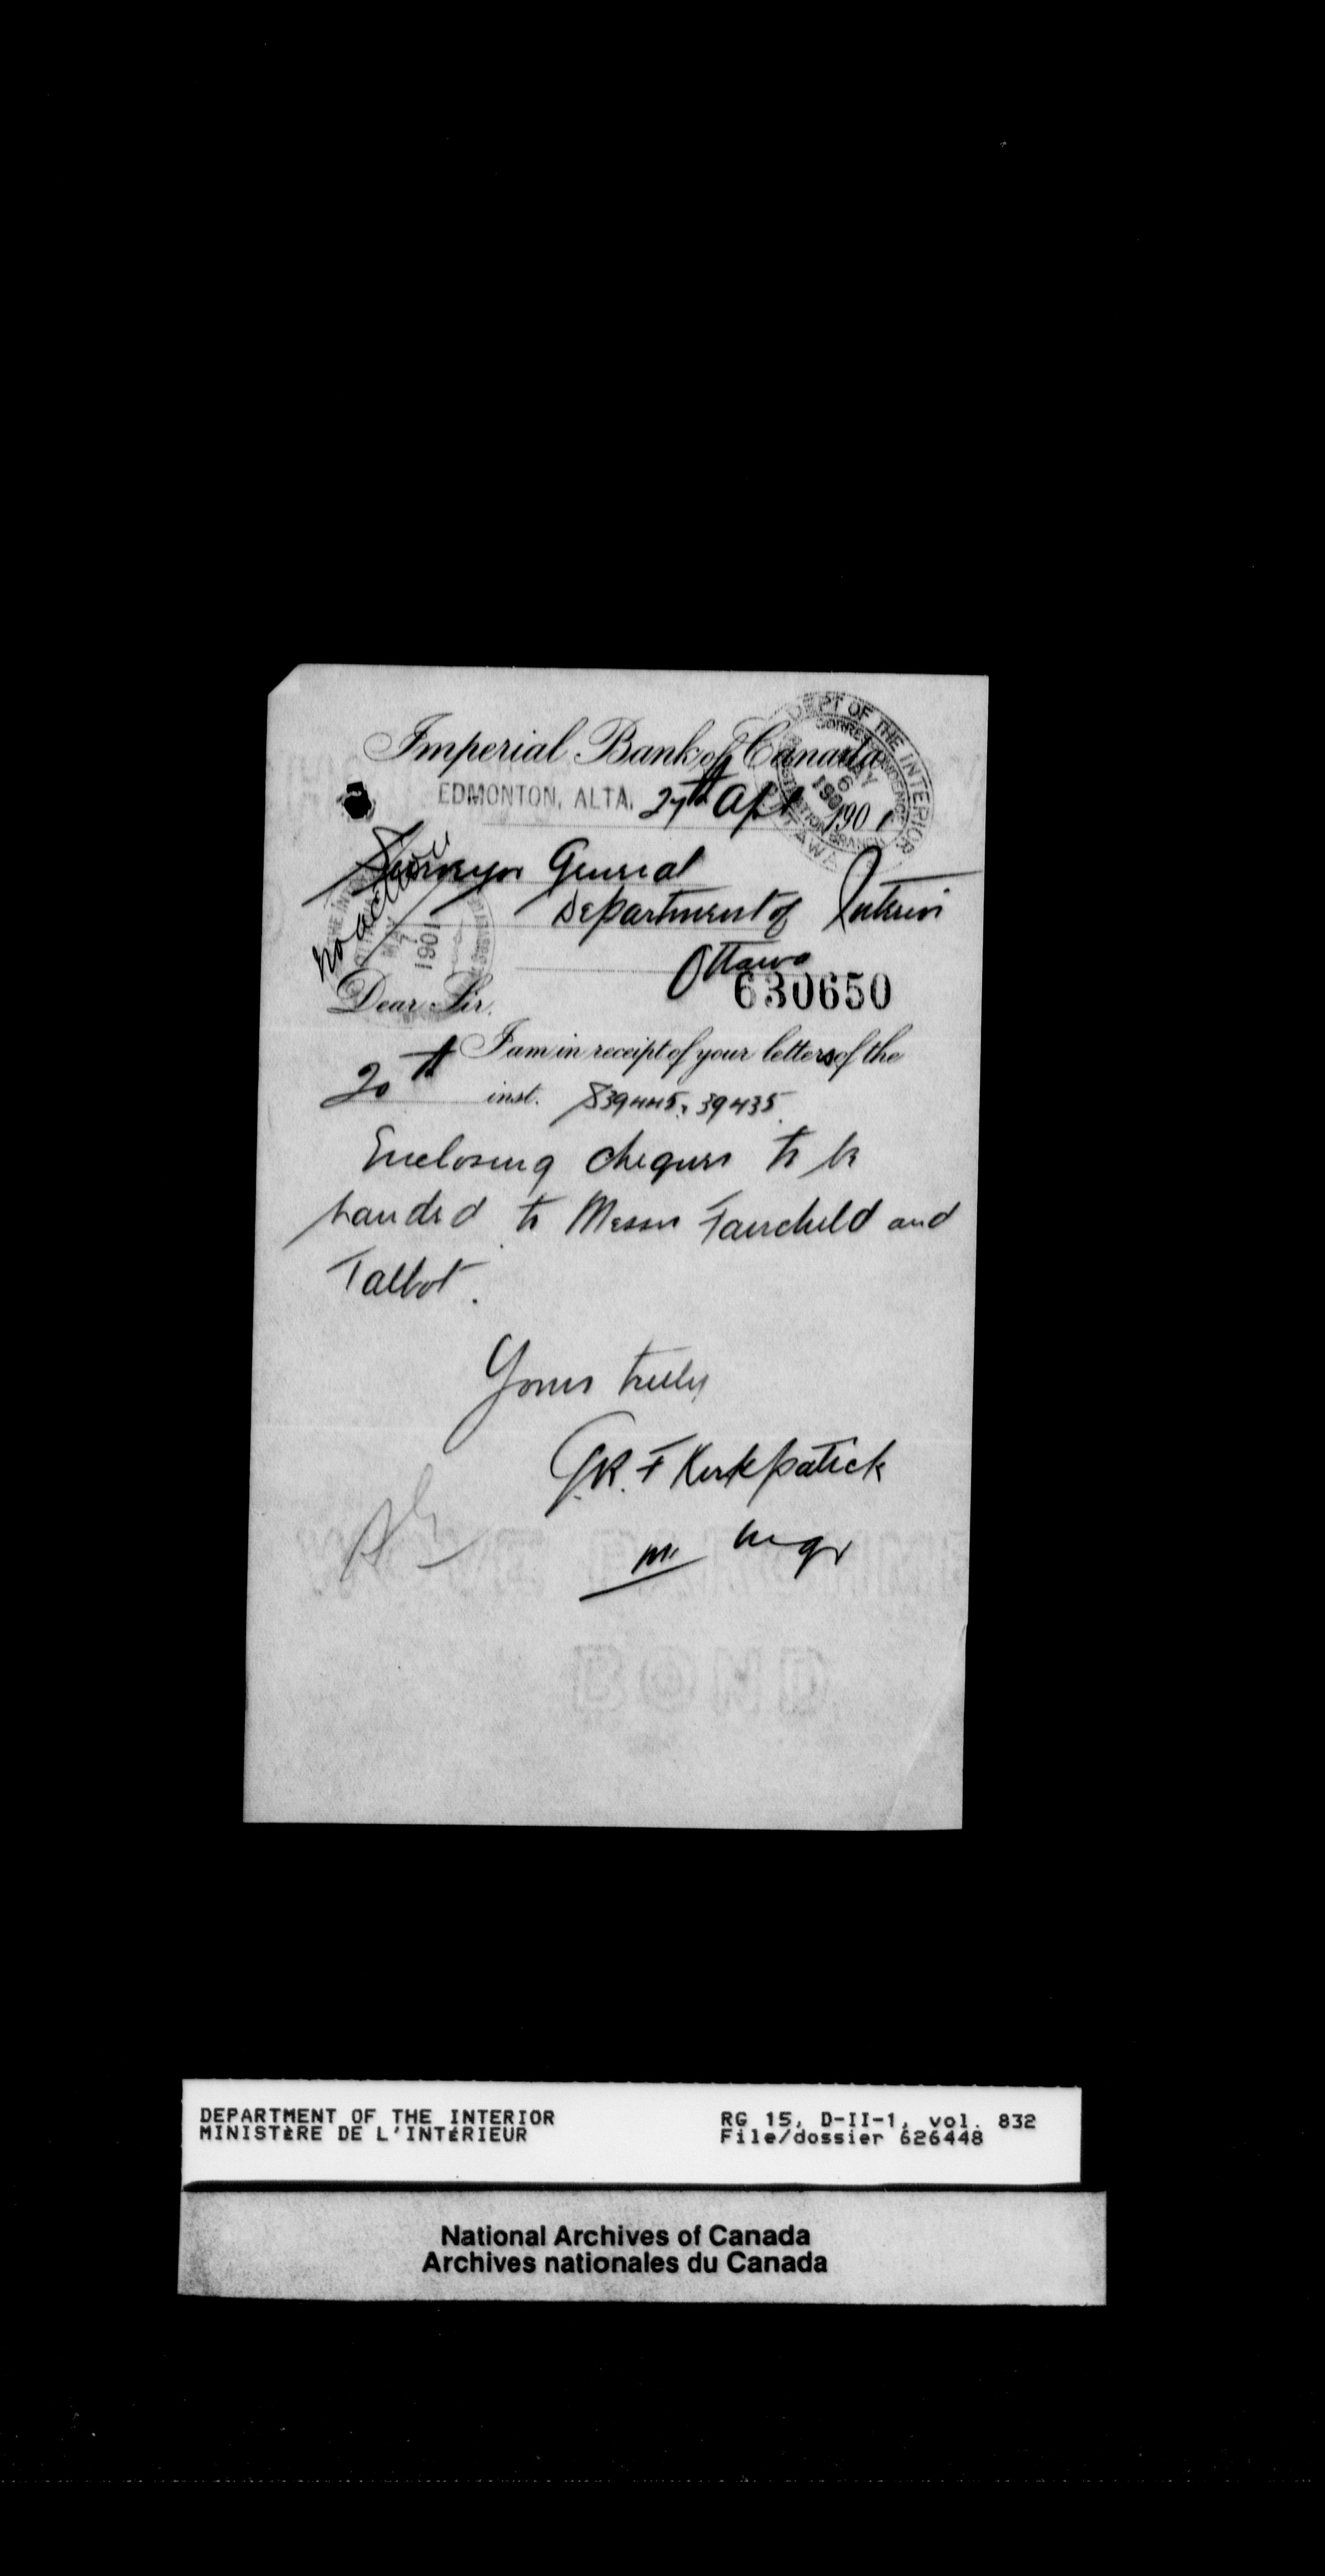 Imperial Bank of Canada
EDMONTON, ALTA. 27th Apl 1901
DEPT OF THE INTERIOR
MAY 6 1901
OTTAWA
Surveyor General
Department of Interior
Ottawa
no action
MAY 7 1901
630650
Dear Sir.
I am in receipt of your letters of the
20th inst. 839445, 39435
Enclosing cheques to be
handed to Messrs Fairchild and
Talbot.
Yours truly
G.R.F Kirkpatrick
Mgr
DEPARTMENT OF THE INTERIOR
MINISTÈRE DE L'INTÉRIEUR
RG 15, D-II-1, vol. 832
File/dossier 626448
National Archives of Canada
Archives nationales du Canada